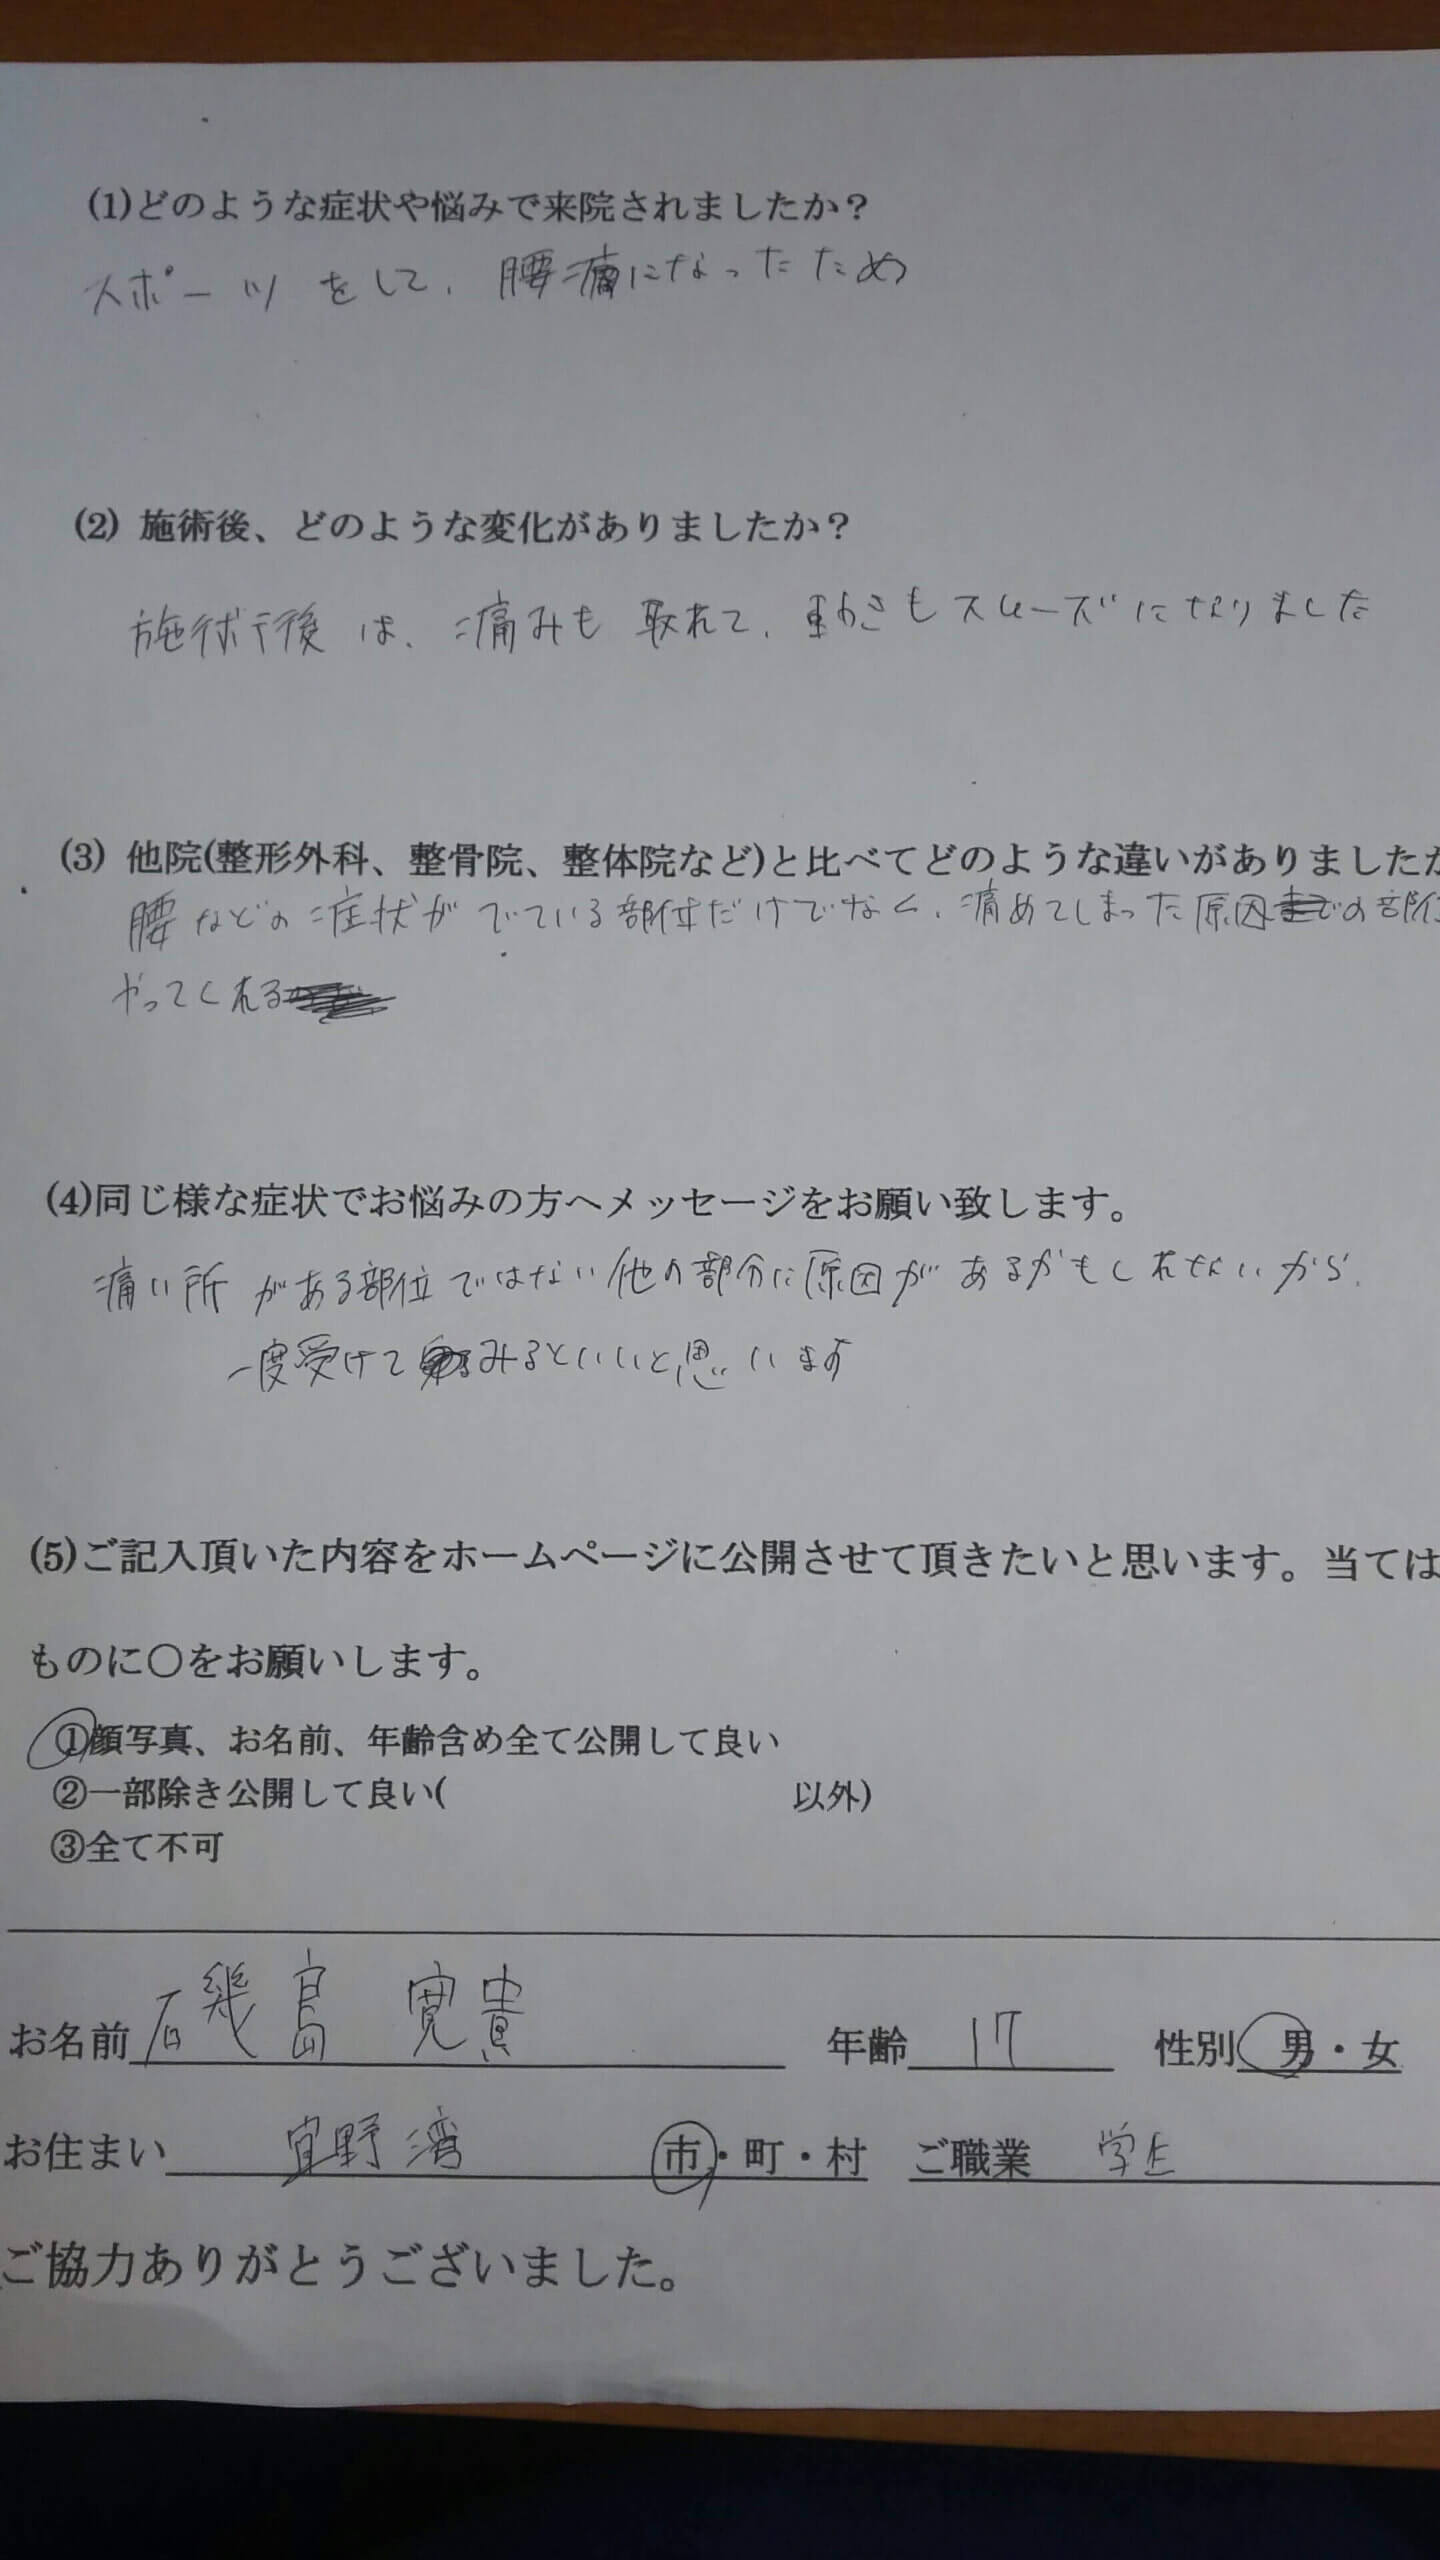 (1)どのような症状や悩みで来院されましたか？
スポーツをして、腰痛になったため
(2) 施術後、どのような変化がありましたか？
施術後は、痛みも取れて、動きもスムーズになりました
(3) 他院(整形外科、整骨院、整体院など)と比べてどのような違いがありましたか
腰などの症状がでている部位だけでなく、痛めてしまった原因の部位
やってくれる
(4)同じ様な症状でお悩みの方へメッセージをお願い致します。
痛い所がある部位ではない他の部分に原因があるかもしれないから、
一度受けてみるといいと思います
(5)ご記入頂いた内容をホームページに公開させて頂きたいと思います。当ては
ものに〇をお願いします。
①顔写真、お名前、年齢含め全て公開して良い
②一部除き公開して良い( 以外)
③全て不可
お名前 磯島 寛貴 年齢 17 性別 男・女
お住まい 宜野湾 市・町・村 ご職業 学生
ご協力ありがとうございました。